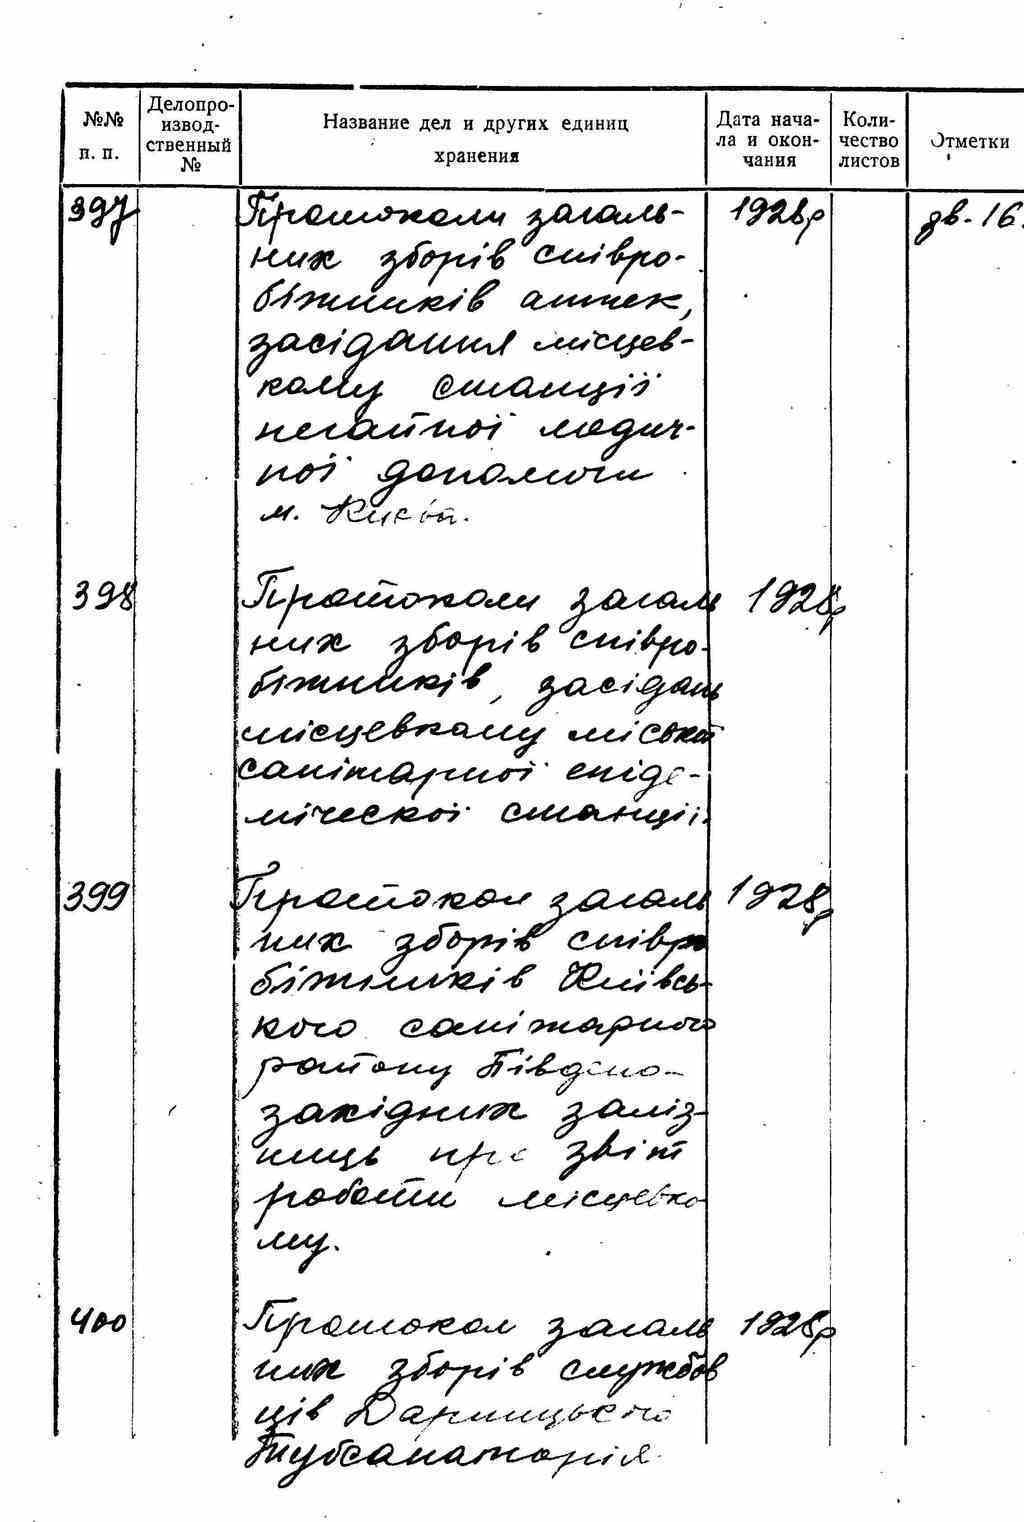 №№ п. п.
Делопро-
извод-
ственный
№
Название дел и других единиц
хранения
Дата нача-
ла и окон-
чания
Коли-
чество
листов
Отметки
397 Протоколи загаль- 1928р зв. 16.
них зборів співро-
бітників аптек,
засідання місцев-
кому станції
негайної медич-
ної допомоги
м. Києва.
398 Протоколи загаль 1928р
них зборів співро-
бітників, засідань
місцевкому міської
санітарної епіде-
міческої станції.
399 Протокол загаль 1928р
них зборів співро
бітників Київсь-
кого санітарного
району Південо-
західних заліз-
ниць про звіт
роботи місцевко
му.
400 Протокол загаль 1928р
них зборів службов
ців Дарницького
Тубсанаторія.